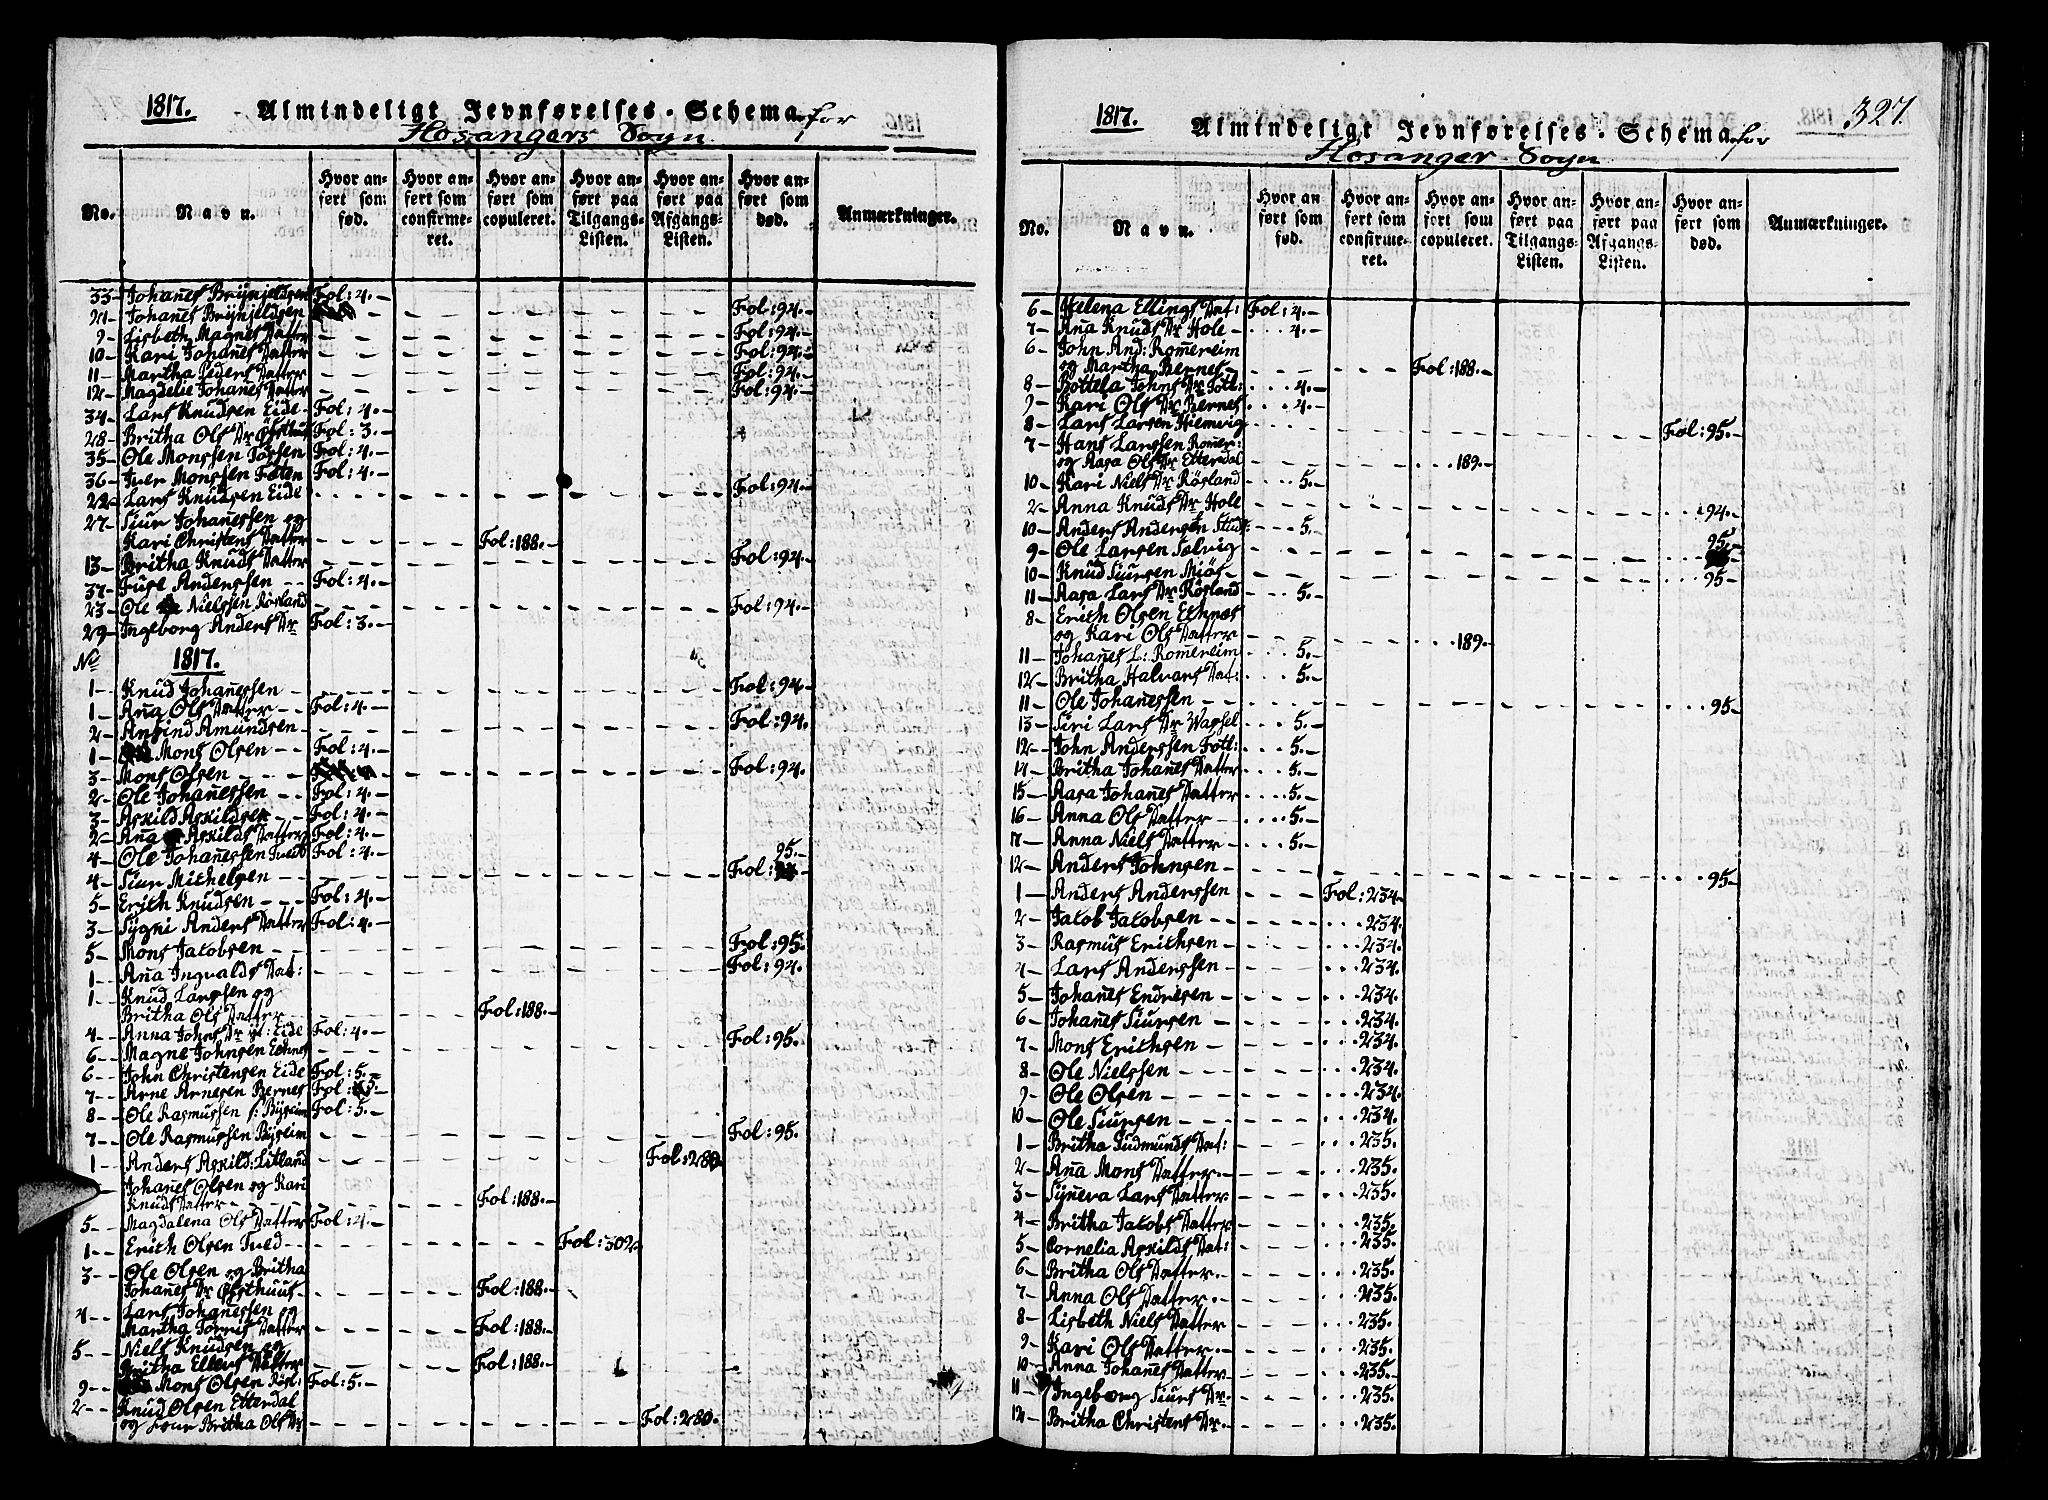 1817. Almindeligt Jevnførelses-Schema for
Hosangers Sogn
No. Navn. Hvor anført som fød. Hvor anført som confirmeret. Hvor anført som copuleret. Hvor anført paa Tilgangs-Listen. Hvor anført paa Afgangs-Listen. Hvor anført som død. Anmærkninger.
33- Johanes Brynjeldsen Fol: 4.-
21- Johanes Brynjeldsen Fol: 94.-
9- Lisbeth Magnes Datter Fol: 94.-
10- Kari Johanes Datter Fol: 94.-
11- Martha Peders Datter Fol: 94.-
12- Magdelie Johanes Datter Fol: 94.-
34- Lars Knudsen Eide Fol: 4.-
28- Britha Ols Dr Fol: 3.-
35- Ole Monssen Fol: 4.-
36- Iver Monssen Fol: 4.-
22- Lars Knudsen Eide Fol: 94.-
27- Siur Johanessen og
Kari Christens Datter Fol: 188.-
13- Britha Knuds Datter Fol: 94.-
37- Anderssen Fol: 4.-
23- Ole Nielssen Røsland Fol: 94.-
29- Ingeborg Anders Dr Fol: 3.-
No 1817.
1- Knud Johanessen Fol: 94.-
1- Aña Ols Datter Fol: 4.-
2- Amund Amundsen Fol: 94.
1- Mons Olsen Fol: 4.-
3- Mons Olsen Fol: 94.
2- Ole Johanessen Fol: 4.-
3- Askild Askildsen Fol: 4.-
2- Aña Askilds Datter Fol: 4.-
4- Ole Johanessen Tved Fol: 4.-
4- Siur Michelsen Fol: 95.-
5- Erich Knudsen Fol: 4.-
3- Sygni Anders Datter Fol: 4.-
5- Mons Jacobsen Fol: 95.
1- Aña Ingvalds Dat: Fol: 94.
1- Knud Larssen og
Britha Ols Datter Fol: 188.-
4- Anna Johns Dr Eide Fol: 4.-
6- Magne Johnsen Fol: 95.
6- John Christensen Eide Fol: 5.-
7- Arne Arnesen Bernes Fol: 5.-
8- Ole Rasmussen Fol: 5.-
7- Ole Rasmussen Fol: 95.
1- Anders Askild: Litland Fol: 280.
Johanes Olsen og Kari
Knuds Datter Fol: 188.-
5- Magdalena Ols Datter Fol: 4.-
1- Erich Olsen Tved Fol: 302.
3- Ole Olsen og Britha
Johanes Dr Fol: 188.
4- Lars Johanessen og
Martha Datter Fol: 188.-
5- Niels Knudsen og
Britha Ellens Datter Fol: 188.-
9- Mons Olsen Røsl: Fol: 5.-
2- Knud Olsen Etterdal
og Britha Ols Dr Fol: 280.
1817. Almindeligt Jevnførelses-Schema for 327.
Hosanger Sogn
No. Navn. Hvor anført som fød. Hvor anført som confirmeret. Hvor anført som copuleret. Hvor anført paa Tilgangs-Listen. Hvor anført paa Afgangs-Listen. Hvor anført som død. Anmærkninger.
6- Helena Ellings Dat: Fol: 4.-
7- Aña Knuds Dr Hole 4.-
6- John And: Romereim
og Martha Bernes Fol: 188.-
8- Bottela Johns Dr 4.-
9- Kari Ols Dr Bernes 4.-
8- Lars Larsen Hiemvig Fol: 95.-
7- Hans Larssen Romer:
og Aasa Ols Dr Etterdal 189.-
10- Kari Niels Dr Røsland 5.-
2- Anna Knuds Dr Hole 94.-
10- Anders Andersen 5.-
9- Ole Larsen Solvig 95.
10- Knud Siursen Miøs 95-
11- Aasa Lars Dr Røsland 5.-
8- Erich Olsen Echnes
og Kari Ols Datter 189.-
11- Johanes L: Romereim 5.-
12- Britha Halvars Dat: 5.-
11- Ole Johanessen 95-
13- Siri Lars Dr Vassel 5.-
12- John Anderssen 5.-
14- Britha Johanes Datter 5.-
15- Aasa Johanes Datter 5.-
16- Anna Ols Datter 5.-
17- Anna Niels Datter 5.-
12- Anders Johnsen 95-
1- Anders Anderssen Fol: 234.
2- Jacob Jacobsen 234.
3- Rasmus Erichsen 234.
4- Lars Anderssen 234.
5- Johanes Endresen 234.
6- Johanes Siursen 234.
7- Mons Erichsen 234.
8- Ole Nielssen 234.
9- Ole Olsen 234.
10- Ole Siursen 234.
1- Britha Gudmunds Dat: 235.
2- Aña Mons Datter 235.
3- Syneva Lars Datter 235.
4- Britha Jacobs Datter 235.
5- Cornelia Askilds Dat: 235.
6- Britha Ols Datter 235.
7- Anna Ols Datter 235.
8- Lisbeth Niels Datter 235.
9- Kari Ols Datter 235.
10- Anna Johanes Datter 235.
11- Ingeborg Siurs Dr 235.
12- Britha Christens Dr 235.